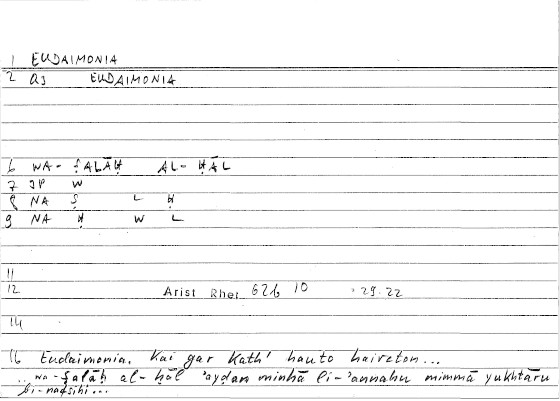 1 EUDAIMONIA
2 aj EUDAIMONIA
6 WA-ṢALĀḤ AL-ḤĀL
7 JP W
8 NA Ṣ L Ḥ
9 NA Ḥ W L
11
12 Arist Rhet 62b 10 29.22
14
16 Eudaimonia. Kai gar kath' hauto haireton...
...wa-ṣalāḥ al-ḥāl 'ayḍan minhā li-'annahu mimmā yukhtāru
bi-nafsihi...